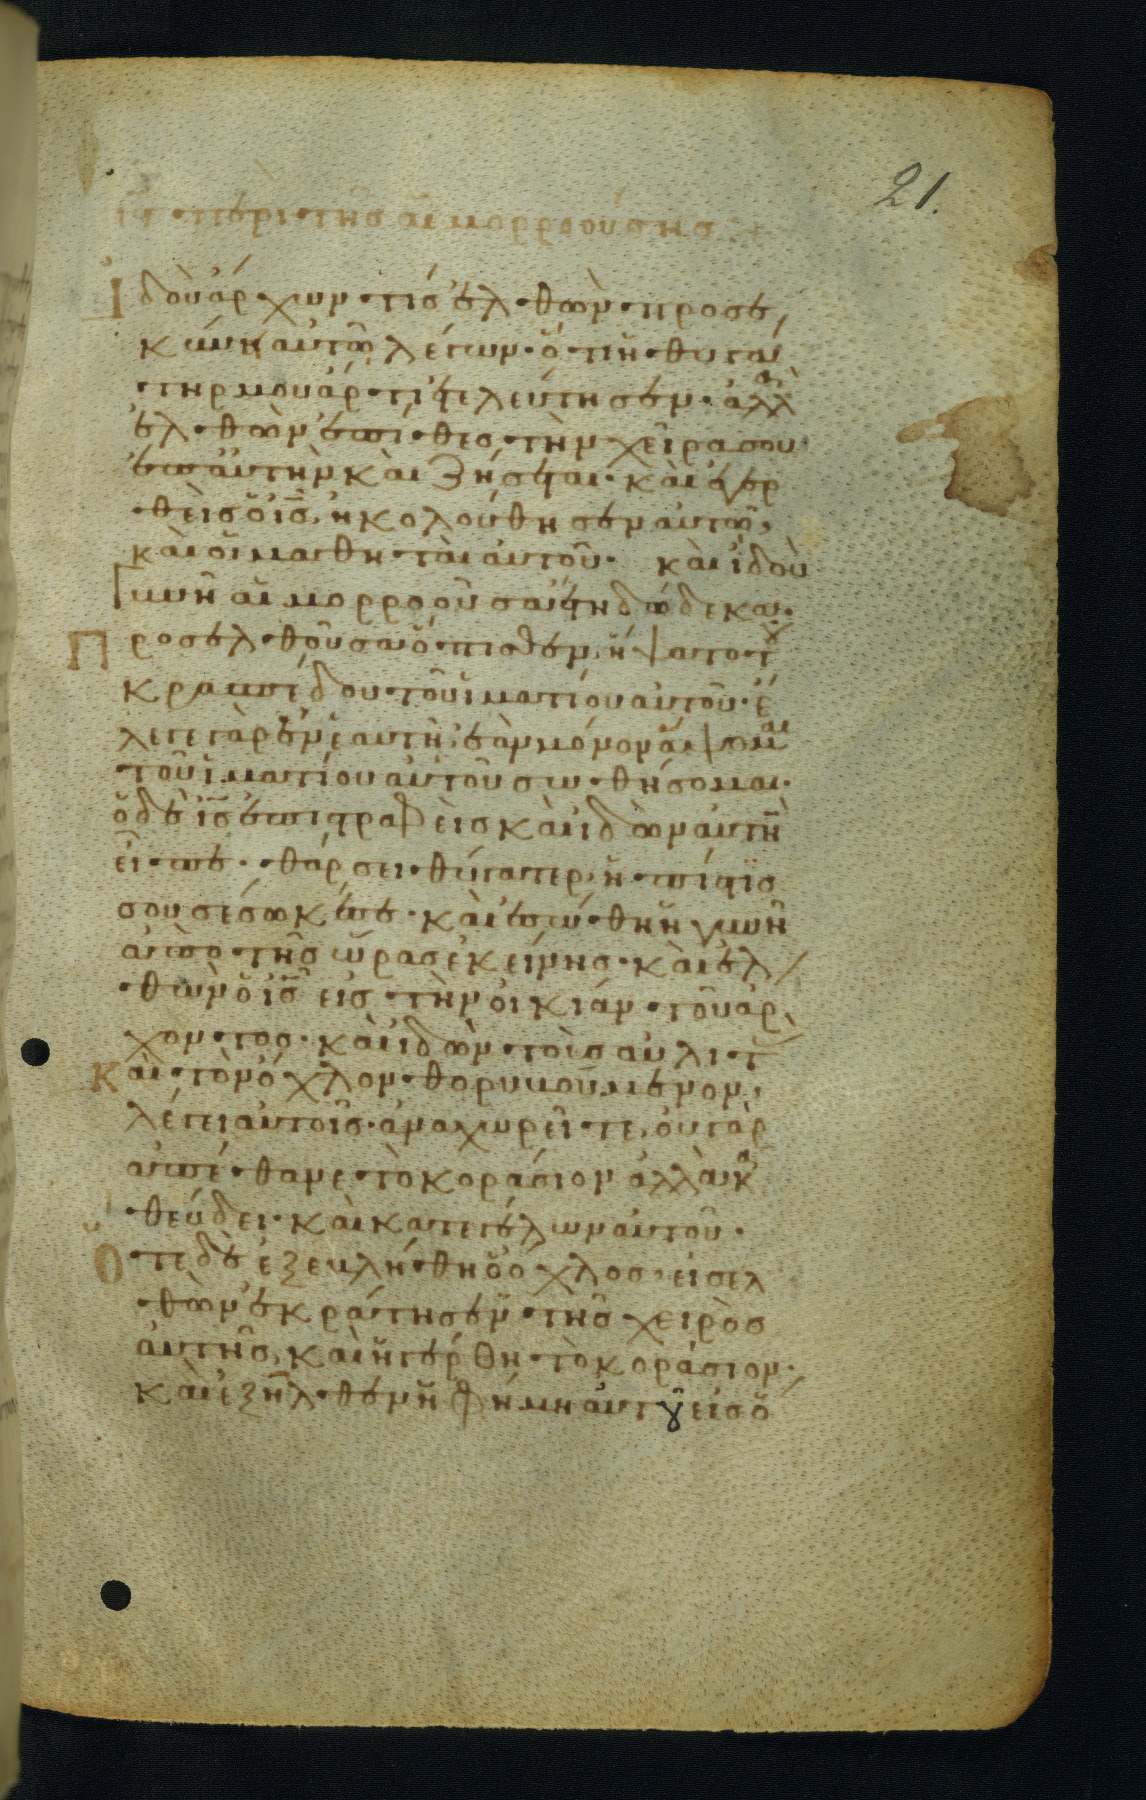 21.
ιϛ περὶ τῆς αἱμορροούσης :+
Ἰδοὺ ἄρχων τίς ἐλθὼν προσε
κύνει αὐτῶ λέγων· ὅτι ἡ θυγά
τηρ μου ἄρτι ἐτελεύτησεν· ἀλλὰ
ἐλθὼν ἐπίθες τὴν χεῖρα σου
ἐπ αὐτὴν καὶ ζήσεται· καὶ ἐγερ
θεὶς ὁ ι̅ς̅, ἠκολούθησεν αὐτῶ,
καὶ οἱ μαθηταὶ αὐτοῦ· καὶ ἰδοὺ
γυνὴ αἱμορροοῦσα ἔτη δώδεκα·
Προσελθοῦσα ὄπισθεν, ἥψατο τοῦ
κρασπέδου τοῦ ἱματίου αὐτοῦ· ἔ
λεγε γὰρ ἐν ἑαυτῆ, ἐὰν μόνον ἅψωμαι
τοῦ ἱματίου αὐτοῦ σωθήσομαι·
ὁ δὲ ι̅ς̅ ἐπιστραφεὶς καὶ ἰδὼν αὐτὴν
εἶπε· θάρσει θύγατερ, ἡ πίστις
σου σέσωκέ σε· καὶ ἐσώθη ἡ γυνὴ
ἀπὸ τῆς ὥρας ἐκείνης· καὶ ἐλ
θὼν ὁ ι̅ς̅ εἰς τὴν οἰκίαν τοῦ ἄρ
χοντος· καὶ ἰδὼν τοὺς αὐλητὰς
Καὶ τὸν ὄχλον θορυβούμενον,
λέγει αὐτοῖς· ἀναχωρεῖτε, οὐ γὰρ
ἀπέθανε τὸ κοράσιον ἀλλὰ κα
θεύδει· καὶ κατεγέλων αὐτοῦ·
Ὅτε δὲ ἐξεβλήθη ὁ ὄχλος, εἰσελ
θὼν ἐκράτησεν τῆς χειρὸς
αὐτῆς, καὶ ἠγέρθη τὸ κοράσιον·
καὶ ἐξῆλθεν ἡ φήμη αὐτοῦ εἰς ὅ